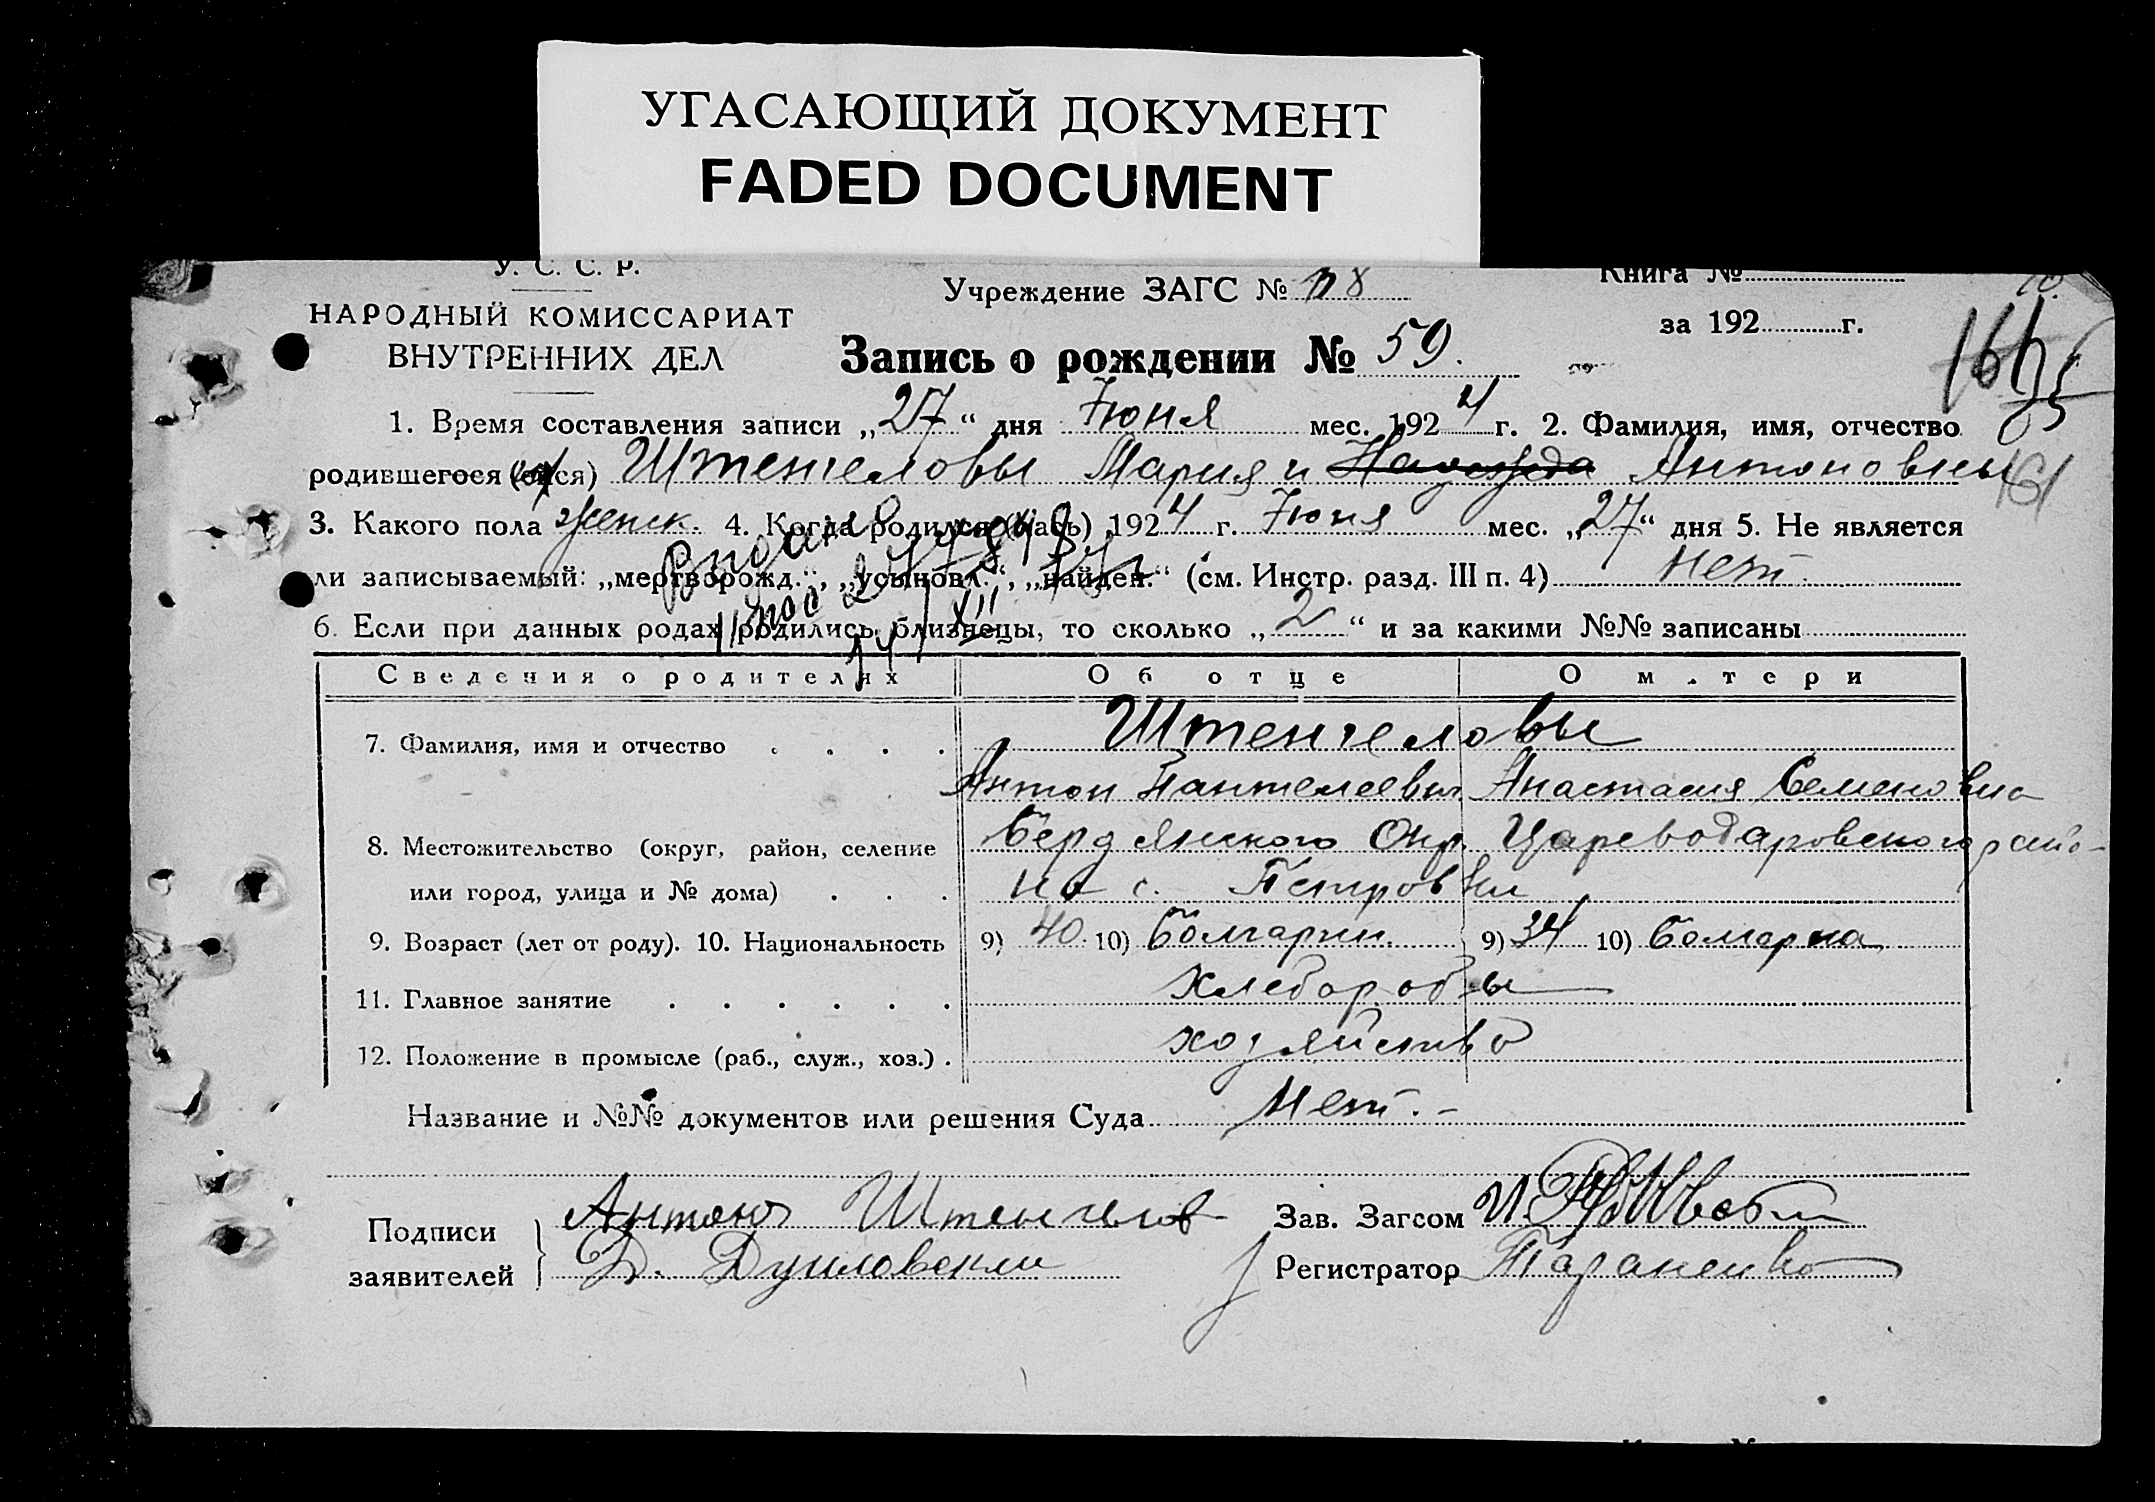 УГАСАЮЩИЙ ДОКУМЕНТ
FADED DOCUMENT
У. С. С. Р.
НАРОДНЫЙ КОМИССАРИАТ
ВНУТРЕННИХ ДЕЛ
Учреждение ЗАГС №
Книга №
за 192 г.
Запись о рождении № 59.
1. Время составления записи „27“ дня Июня мес. 1924 г. 2. Фамилия, имя, отчество
родившегося (ейся) Штенгеловы Мария и Надежда Антоновны
161
3. Какого пола женск. 4. Когда родился (лась) 1924 г. Июня мес. „27“ дня 5. Не является
ли записываемый: „мертворожд.“, „усыновл.“, „найден.“ (см. Инстр. разд. III п. 4) нет.
6. Если при данных родах родились близнецы, то сколько „2“ и за какими №№ записаны
Видано
XII
Сведения о родителях Об отце О м.тери
7. Фамилия, имя и отчество Штенгеловы
Антон Пантелеевич Анастасия Семеновна
8. Местожительство (округ, район, селение Бердянского Окр. Цареводаровского райо-
или город, улица и № дома) на с. Петровки
9. Возраст (лет от роду). 10. Национальность 9) 40. 10) Болгарин. 9) 34 10) Болгарка
11. Главное занятие хлеборобы
12. Положение в промысле (раб., служ., хоз.) хозяйство
Название и №№ документов или решения Суда Нет. -
Подписи
заявителей
Антон Штенгелов
Д.
Зав. Загсом
Регистратор Тараненко